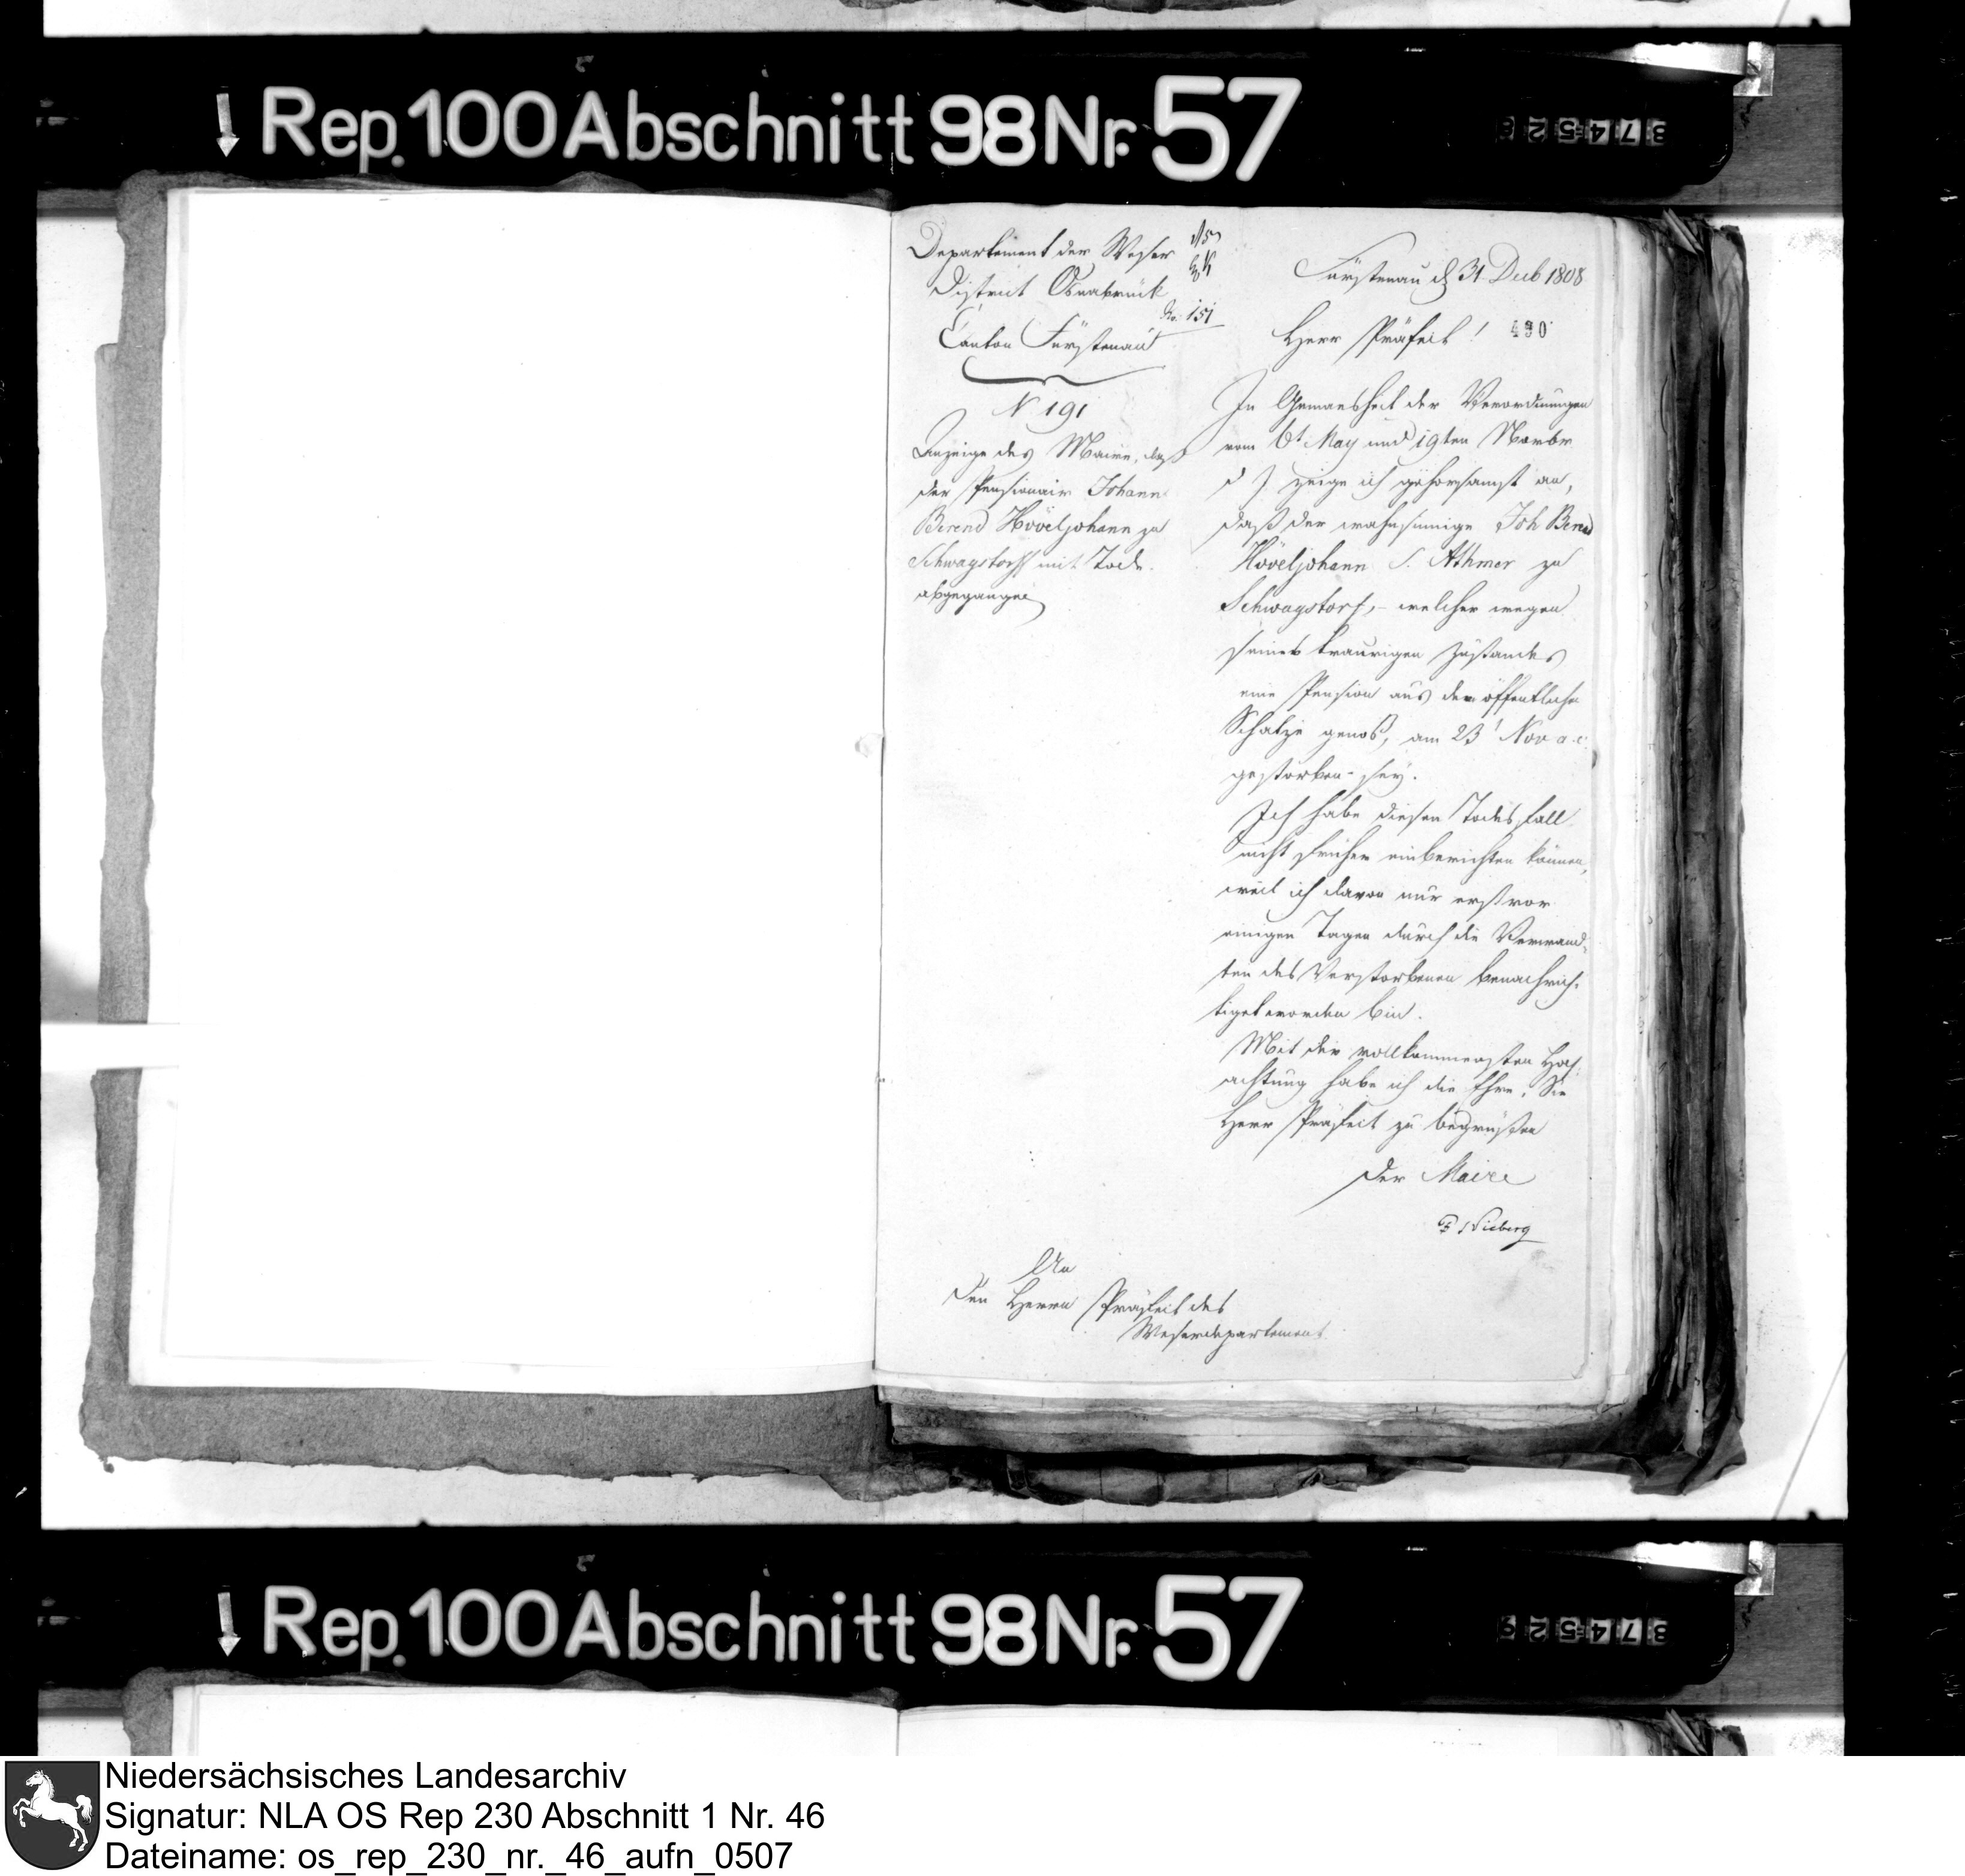 Rep. 100 Abschnitt 98 Nr. 57
Departement der Weser
District Osnabrück
No. 151
Canton Fürstenau
N 191
Anzeige des Maire, daß
der Pensionair Johann
Berend Höveljohann zu
Schwagstorff mit Tode
abgegangen
Fürstenau d 31 Decb 1808
Herr Präfect! 430
In Gemaesheit der Verordnungen
vom 6t May und 19ten Novbr
d J. zeige ich gehorsamst an,
daß der wahnsinnige Joh Berend
Höveljohann s. Athmer zu
Schwagstorf, – welcher wegen
seines traurigen Zustandes
eine Pension aus dem öffentlichen
Schatze genoß, am 23t Nov a. c.
gestorben sey.
Ich habe diesen Todesfall
nicht früher einberichten können,
weil ich davon nur erst vor
einigen Tagen durch die Verwand-
ten des Verstorbenen benachrich-
tiget worden bin.
Mit der vollkommensten Hoch-
achtung habe ich die Ehre, Sie
Herr Präfect zu begrüßen
Der Maire
Nieberg
An
Den Herrn Präfect des
Weserdepartement
Rep. 100 Abschnitt 98 Nr. 57
Niedersächsisches Landesarchiv
Signatur: NLA OS Rep 230 Abschnitt 1 Nr. 46
Dateiname: os_rep_230_nr._46_aufn_0507